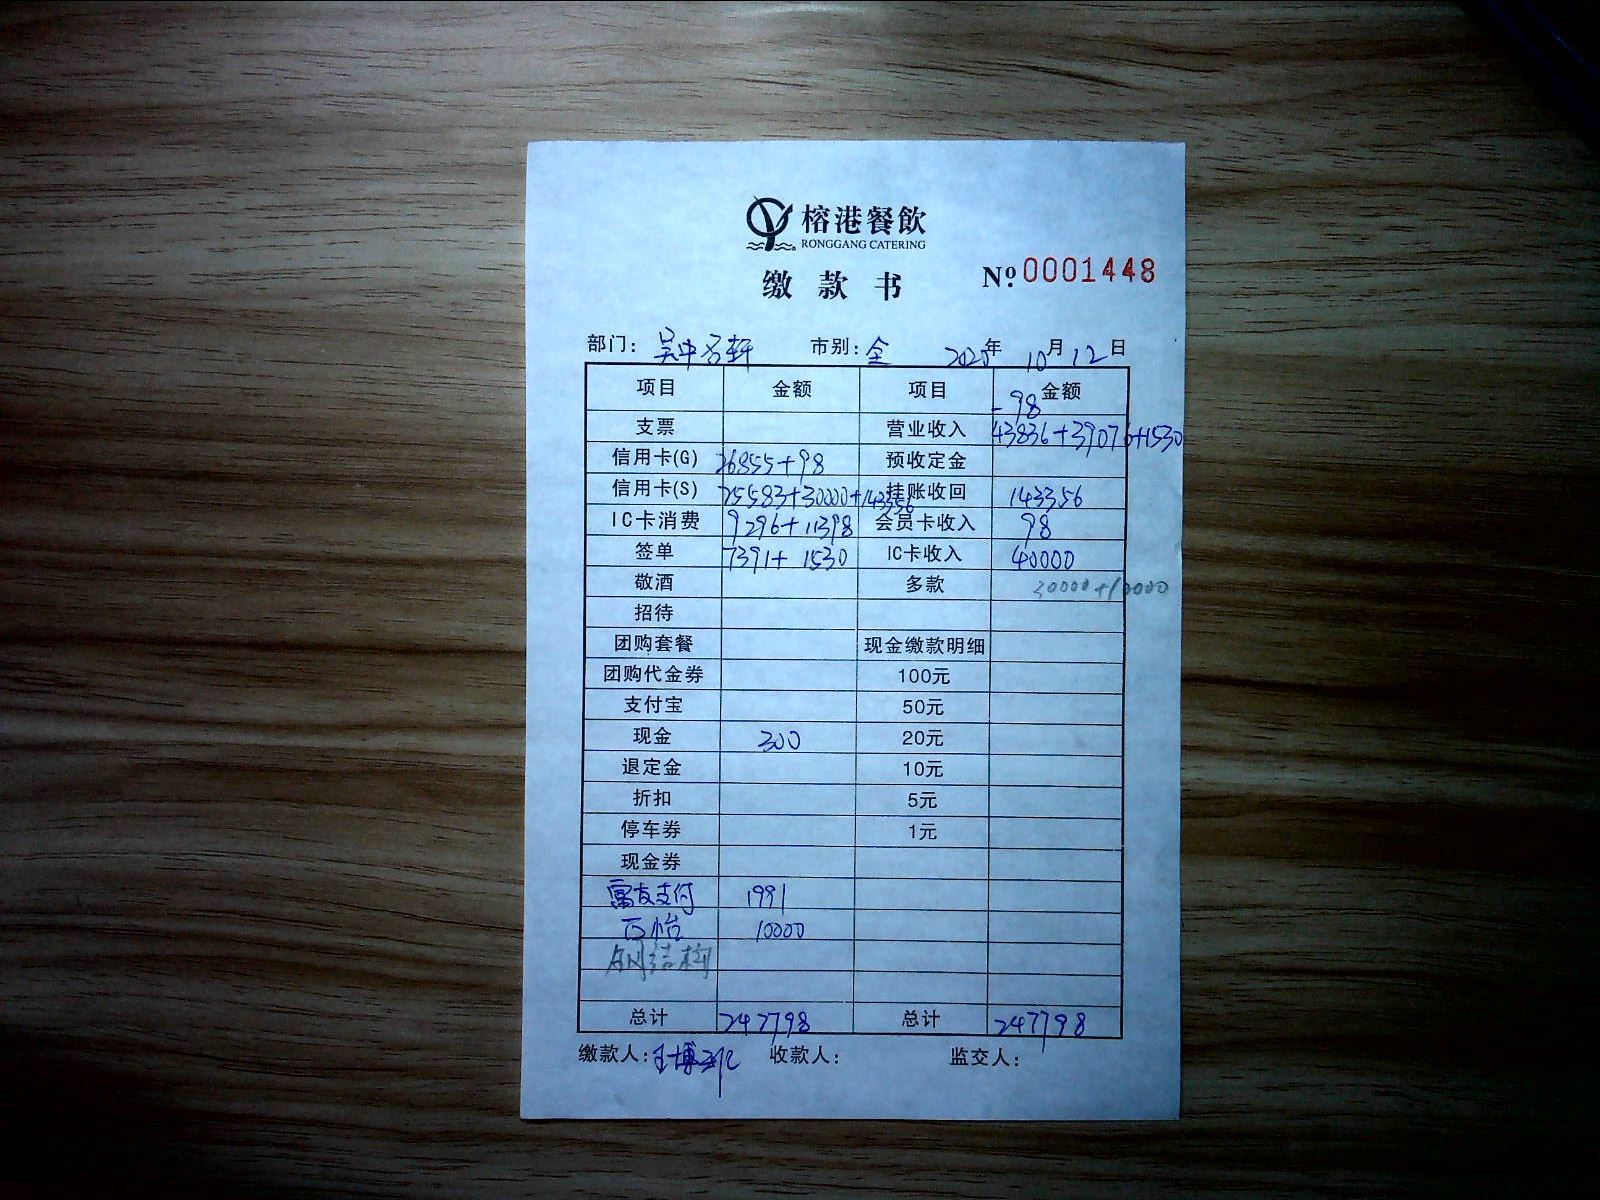 榕港餐飲
RONGGANG CATERING
缴款书 Nº:0001448
部门: 吴中名轩 市别: 全 2025年10月12日
项目 金额 项目 金额
-98
支票 营业收入 43836+39076+1530
信用卡(G) 26855+98 预收定金
信用卡(S) 25583+30000+143356 挂账收回 143356
IC卡消费 9296+11398 会员卡收入 98
签单 7391+1530 IC卡收入 40000
敬酒 多款 30000+10000
招待
团购套餐 现金缴款明细
团购代金券 100元
支付宝 50元
现金 300 20元
退定金 10元
折扣 5元
停车券 1元
现金券
富友支付 1991
10000
钢结构
总计 267798 总计 267798
缴款人: 收款人: 监交人: